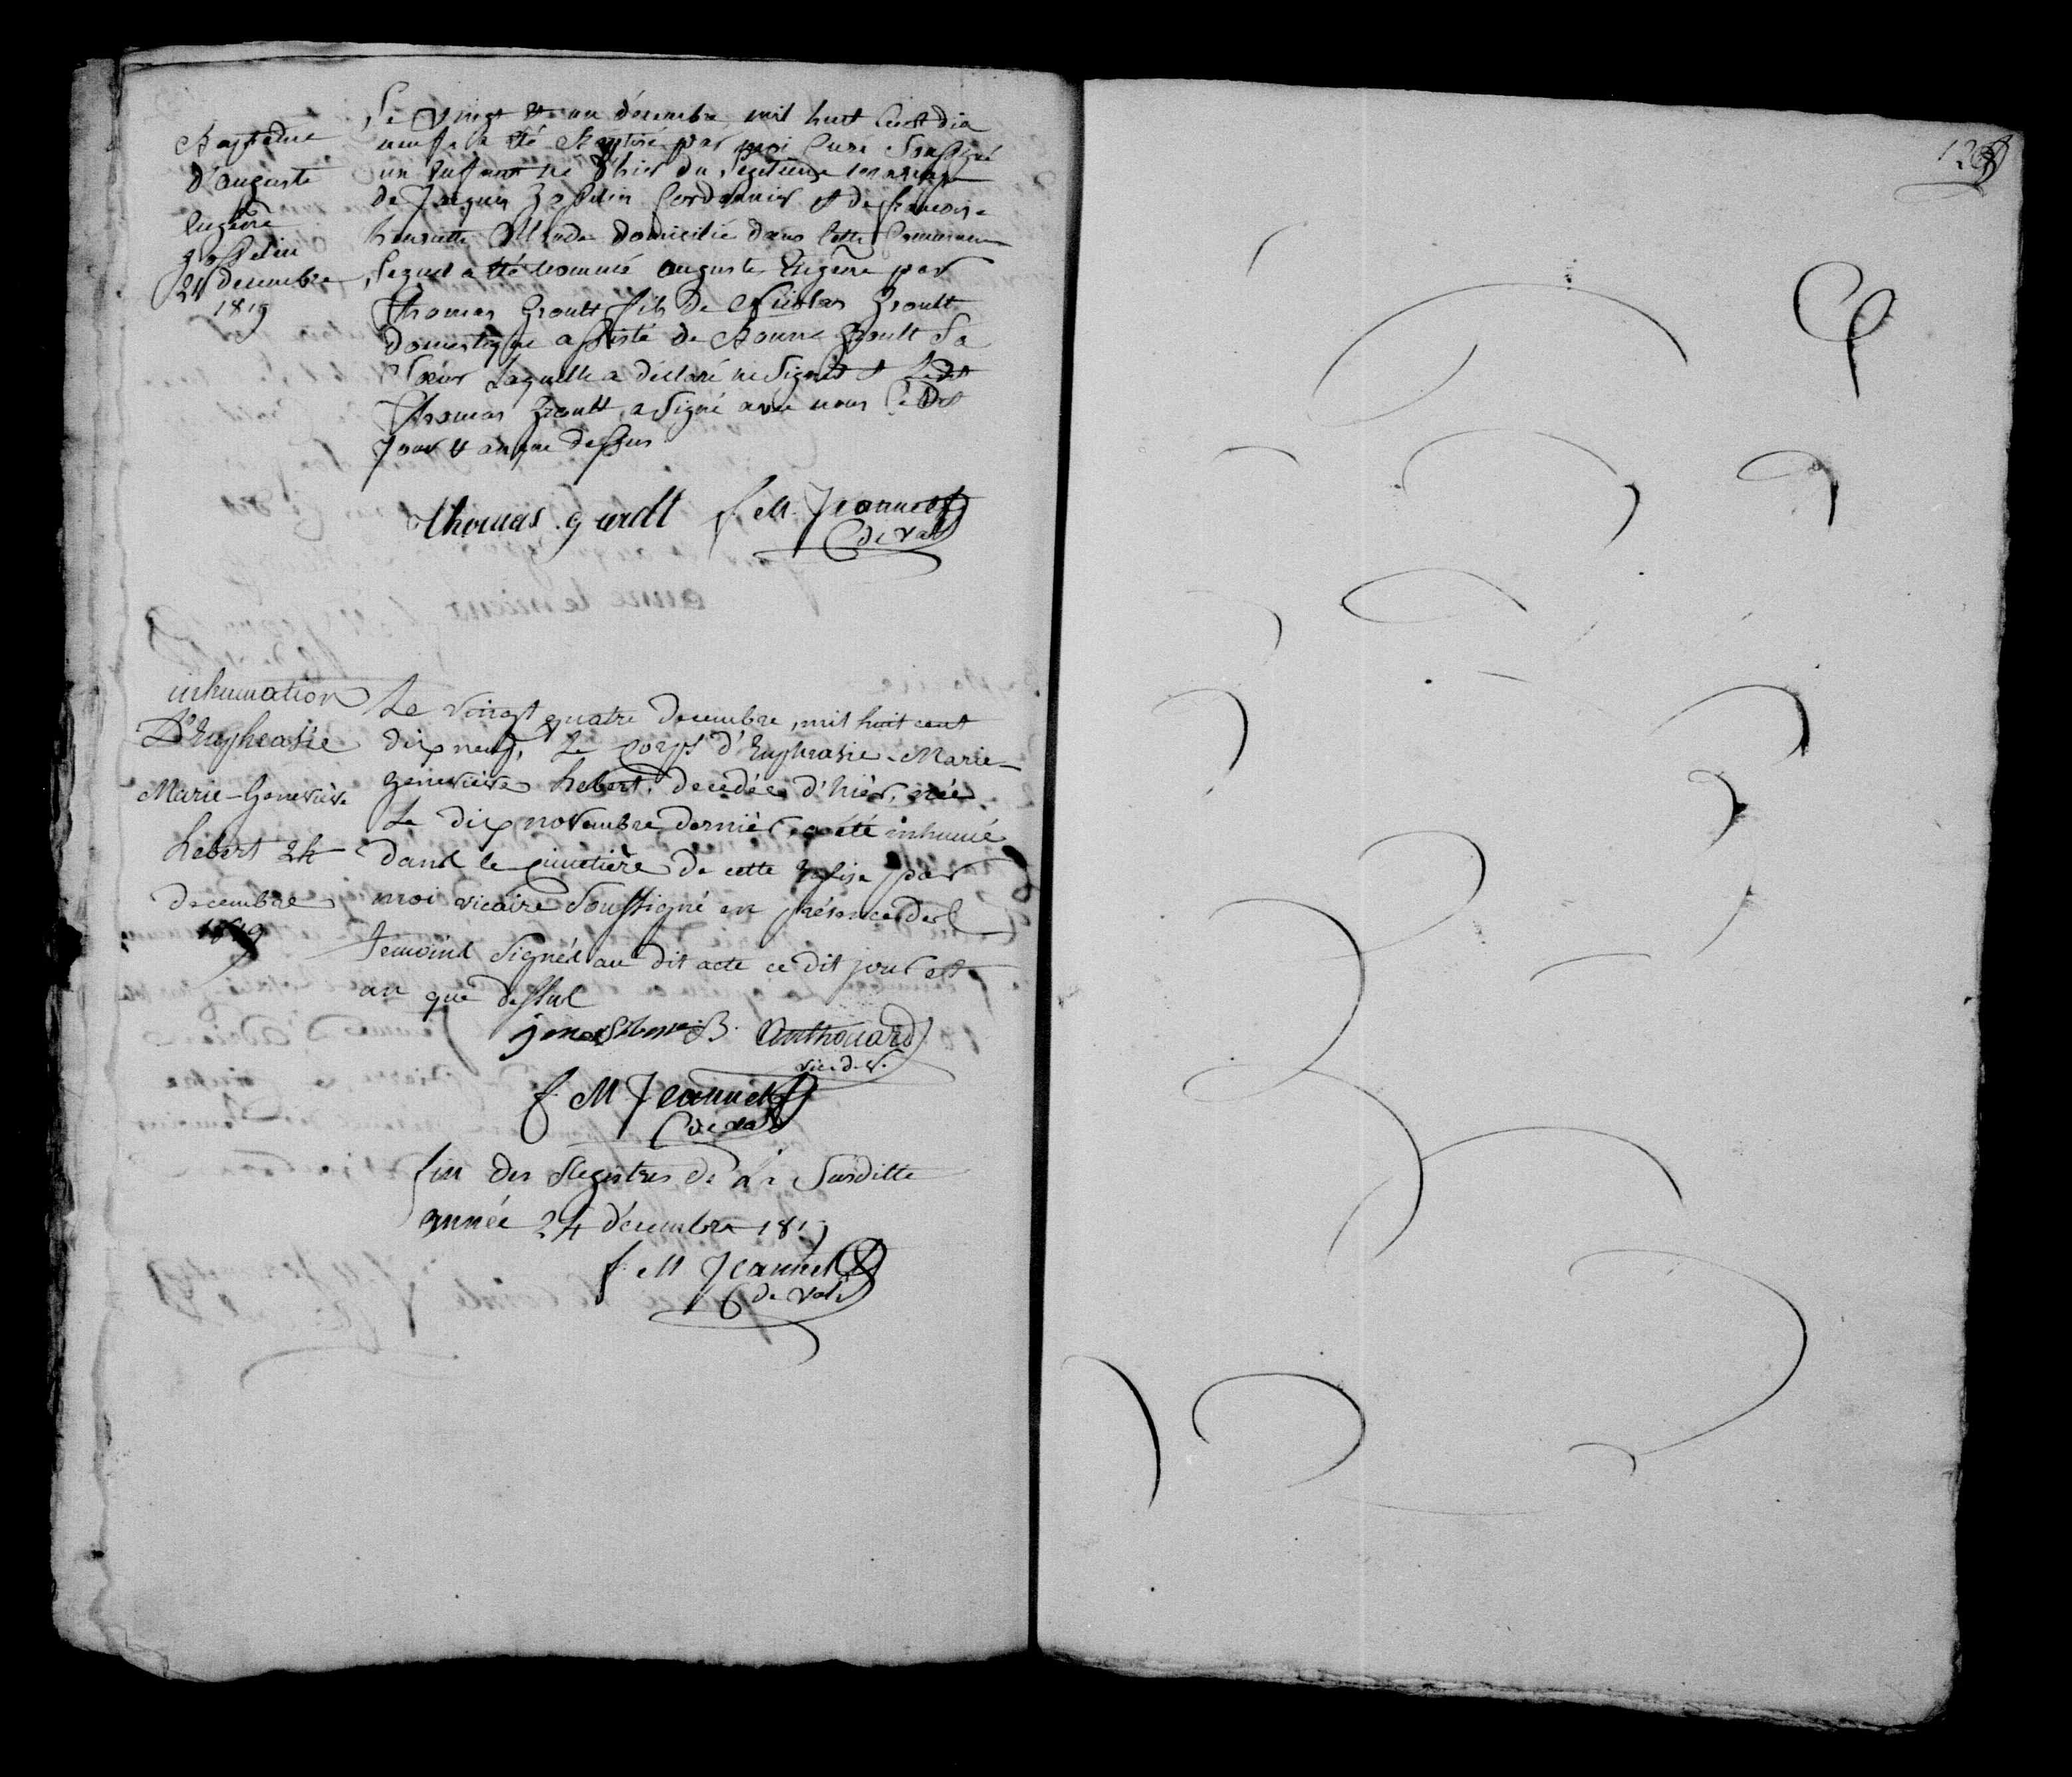 Baptême
d'auguste
Eugène
gosselin
21 decembre
1819
Le vingt et un décembre mil huit Cent dix
neuf a été Baptisé par moi Curé Soussigné
un Enfant né d'hier du légitime mariage
de Jacques Gosselin Cordonnier et de francoise
henriette domicilié dans Cette Commune
lequel a été nommé auguste Eugène par
Thomas Groult fils de Nicolas Groult
domestique assisté de Bonne Groult Sa
Sœur Laquelle a déclaré ne Signer et Ledit
Thomas Groult a Signé avec nous Ce Dit
Jour et an que dessus
thomas groult f. M. Jeannet
C de val
inhumation
D'Euphrasie
Marie-Geneviève
hebert 24
decembre
1819
Le vingt quatre decembre, mil huit cent
dix neuf, Le corps d'Euphrasie-Marie-
geneviève hebert, decedée d'hièr, née
Le dix novembre dernièr, a été inhumé
dans le cimetière de cette Eglise par
moi vicaire Soussigné en présence des
temoins Signés au dit acte ce dit jour et
an que dessus
B. Anthouard
vic. d. v.
f. M. Jeannet
C de val
fin des Registres de La Susditte
année 24 décembre 1819
f. M Jeannet
C de val